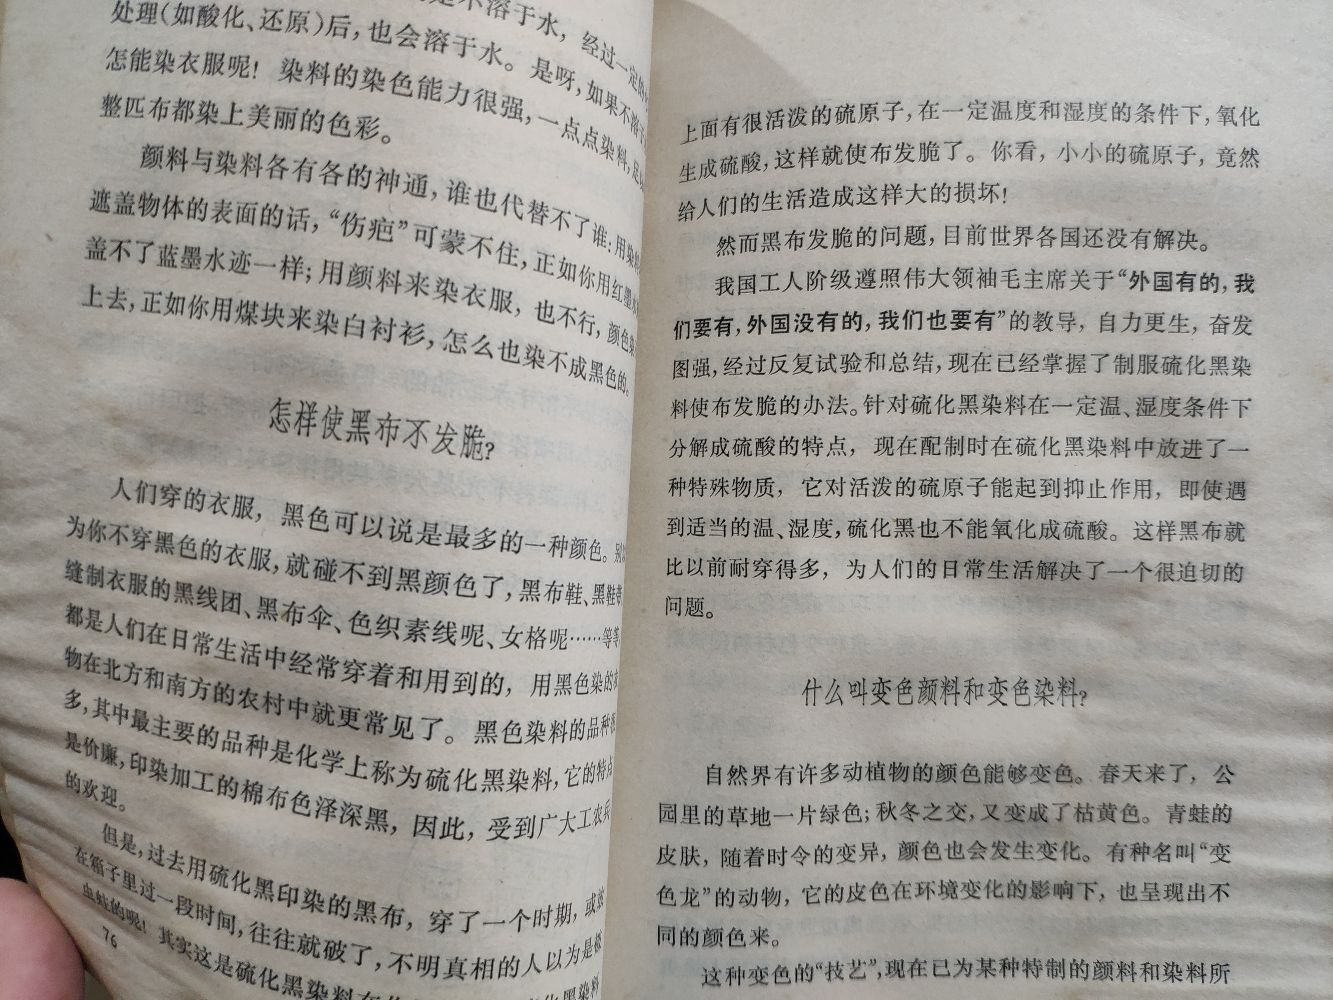 是不溶于水，经过一定的
处理(如酸化、还原)后，也会溶于水。是呀，如果不溶
怎能染衣服呢！染料的染色能力很强，一点点染料，足
整匹布都染上美丽的色彩。
颜料与染料各有各的神通，谁也代替不了谁：用染料
遮盖物体的表面的话，“伤疤”可蒙不住，正如你用红墨水
盖不了蓝墨水迹一样；用颜料来染衣服，也不行，颜色染
上去，正如你用煤块来染白衬衫，怎么也染不成黑色的。
怎样使黑布不发脆？
人们穿的衣服，黑色可以说是最多的一种颜色。别
为你不穿黑色的衣服，就碰不到黑颜色了，黑布鞋、黑鞋带
缝制衣服的黑线团、黑布伞、色织素线呢、女格呢……等等
都是人们在日常生活中经常穿着和用到的，用黑色染的衣
物在北方和南方的农村中就更常见了。黑色染料的品种很
多，其中最主要的品种是化学上称为硫化黑染料，它的特点
是价廉，印染加工的棉布色泽深黑，因此，受到广大工农兵
的欢迎。
但是，过去用硫化黑印染的黑布，穿了一个时期，或放
在箱子里过一段时间，往往就破了，不明真相的人以为是被
虫蛀的呢！其实这是硫化黑染料
76
上面有很活泼的硫原子，在一定温度和湿度的条件下，氧化
生成硫酸，这样就使布发脆了。你看，小小的硫原子，竟然
给人们的生活造成这样大的损坏！
然而黑布发脆的问题，目前世界各国还没有解决。
我国工人阶级遵照伟大领袖毛主席关于“外国有的，我
们要有，外国没有的，我们也要有”的教导，自力更生，奋发
图强，经过反复试验和总结，现在已经掌握了制服硫化黑染
料使布发脆的办法。针对硫化黑染料在一定温、湿度条件下
分解成硫酸的特点，现在配制时在硫化黑染料中放进了一
种特殊物质，它对活泼的硫原子能起到抑止作用，即使遇
到适当的温、湿度，硫化黑也不能氧化成硫酸。这样黑布就
比以前耐穿得多，为人们的日常生活解决了一个很迫切的
问题。
什么叫变色颜料和变色染料？
自然界有许多动植物的颜色能够变色。春天来了，公
园里的草地一片绿色；秋冬之交，又变成了枯黄色。青蛙的
皮肤，随着时令的变异，颜色也会发生变化。有种名叫“变
色龙”的动物，它的皮色在环境变化的影响下，也呈现出不
同的颜色来。
这种变色的“技艺”，现在已为某种特制的颜料和染料所